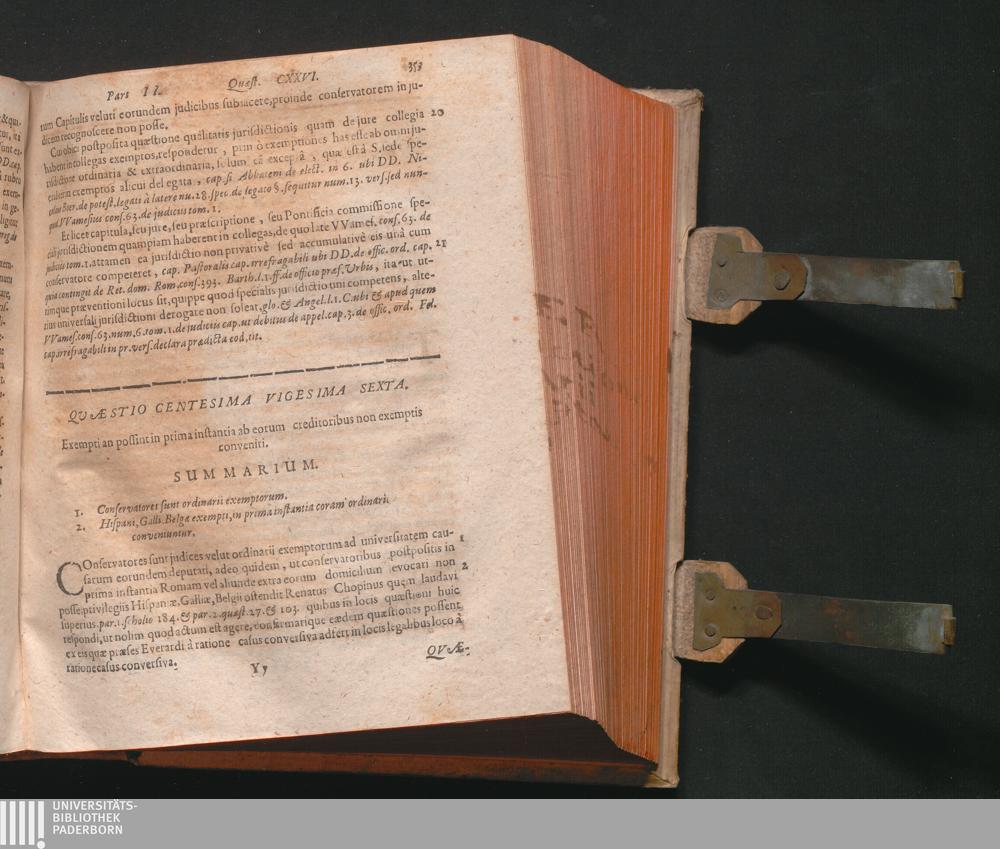 Part II. Quæst. CXXVI. 353
tum Capitulis veluti eorundem judicibus subjacere, proinde conservatorem in ju-
dicem recognoscere non posse.
Cui obici postposita quæstione qualitatis jurisdictionis quam de jure collegia 20
habent in collegas exemptos, respondetur, prim ò exemptiones has esse ab omni ju-
risdictione ordinaria & extraordinaria, solum eâ exceptâ, quæ est à S. sede spe-
cialiter in exemptos alicui delegata, cap. si Abbatem de elect. in 6. ubi DD. Ni-
colaus Boer. de potest. legati à latere nu. 28. spec. de legato §. sequitur num. 13. vers. sed nun-
quid VVamesius cons. 63. de judiciis tom. 1.
Et licet capitula, seu jure, seu præscriptione, seu Pontificia commissione spe-
cali jurisdictionem quampiam haberent in collegas, de quo late VVames. cons. 63. de
judiciis tom. 1. attamen ea jurisdictio non privativè sed accumulativè eis unà cum
conservatore competeret, cap. Pastoralis cap. irrefragabili ubi DD. de offic. ord. cap. 21
quia contingit de Ret. dom. Rom. cons. 393. Barth. l. 1. ff. de officio præf. Urbis, ita ut ut-
rimque præventioni locus sit, quippe quod specialis jurisdictio uni competens, alte-
rius universali jurisdictioni derogare non soleat, glo. & Angel. l. 1. C. ubi & apud quem
VVames. cons. 63. num. 6. tom. 1. de judiciis cap. ut debitus de appel. cap. 3. de offic. ord. Fel.
cap. irrefragabili in pr. vers. declara prædicta eod. tit.
QVÆSTIO CENTESIMA VIGESIMA SEXTA.
Exempti an possint in prima instantia ab eorum creditoribus non exemptis
conveniri.
SUMMARIUM.
1. Conservatores sunt ordinarii exemptorum.
2. Hispani, Galli, Belgæ exempti, in prima instantia coram ordinariis
conveniuntur.
COnservatores sunt judices velut ordinarii exemptorum ad universitatem cau- 1
sarum eorundem deputati, adeo quidem, ut conservatoribus postpositis in
prima instantia Romam vel aliunde extra eorum domicilium evocari non 2
posse privilegiis Hispaniæ, Galliæ, Belgii ostendit Renatus Chopinus quem laudavi
superius. par. 1. scholio 184. & par. 2. quæst. 27. & 103. quibus in locis quæstioni huic
respondi, ut nolim quod actum est agere, confirmarique eædem quæstiones possent
ex eis quæ præses Everardi à ratione casus conversiva adfert in locis legalibus loco à
ratione casus conversiva.
Yy QVÆ-
UNIVERSITÄTS-
BIBLIOTHEK
PADERBORN